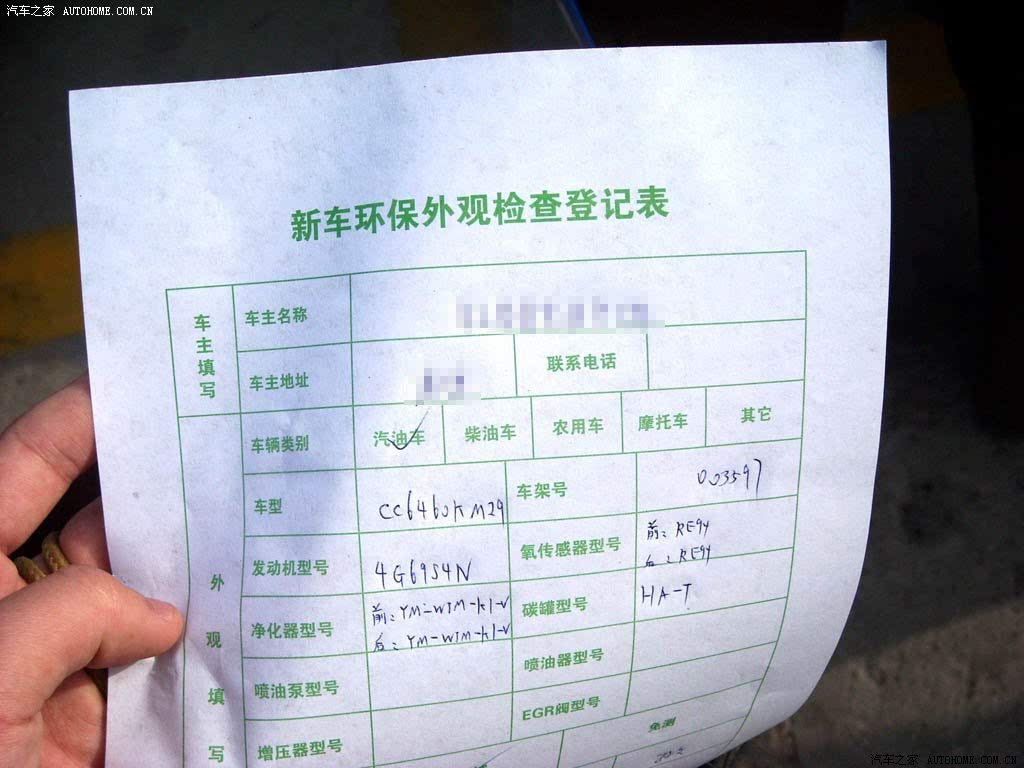 汽车之家 AUTOHOME.COM.CN
新车环保外观检查登记表
车主填写
车主名称
车主地址
联系电话
外观填写
车辆类别 汽油车 柴油车 农用车 摩托车 其它
车型 CC6460KM29 车架号 003597
发动机型号 4G69S4N 氧传感器型号 前:RE94
后:RE94
净化器型号 前:YM-WJM-KI-V 碳罐型号 HA-T
后:YM-WJM-KI-V
喷油泵型号 喷油器型号
EGR阀型号
增压器型号 免测
汽车之家 AUTOHOME.COM.CN